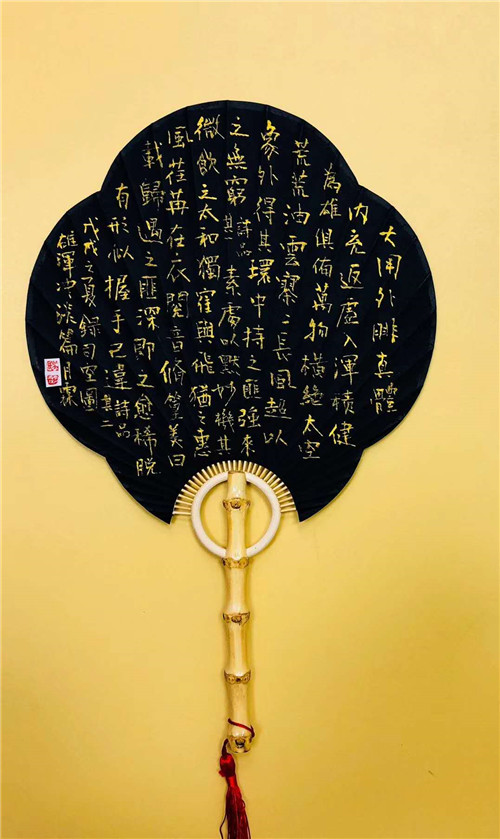 大用外腓真體
内充返虛入渾積健
為雄俱備萬物橫絕太空
荒荒油雲寥〻長風超以
象外得其環中持之匪強來
之無窮詩品其一素處以默妙機其
微飲之太和獨隺與飛猶之惠
風荏苒在衣閱音脩篁美曰
載歸遇之匪深即之愈稀脫
有形似握手已違詩品其二
戊戌之夏錄司空圖
雄渾沖淡篇月深